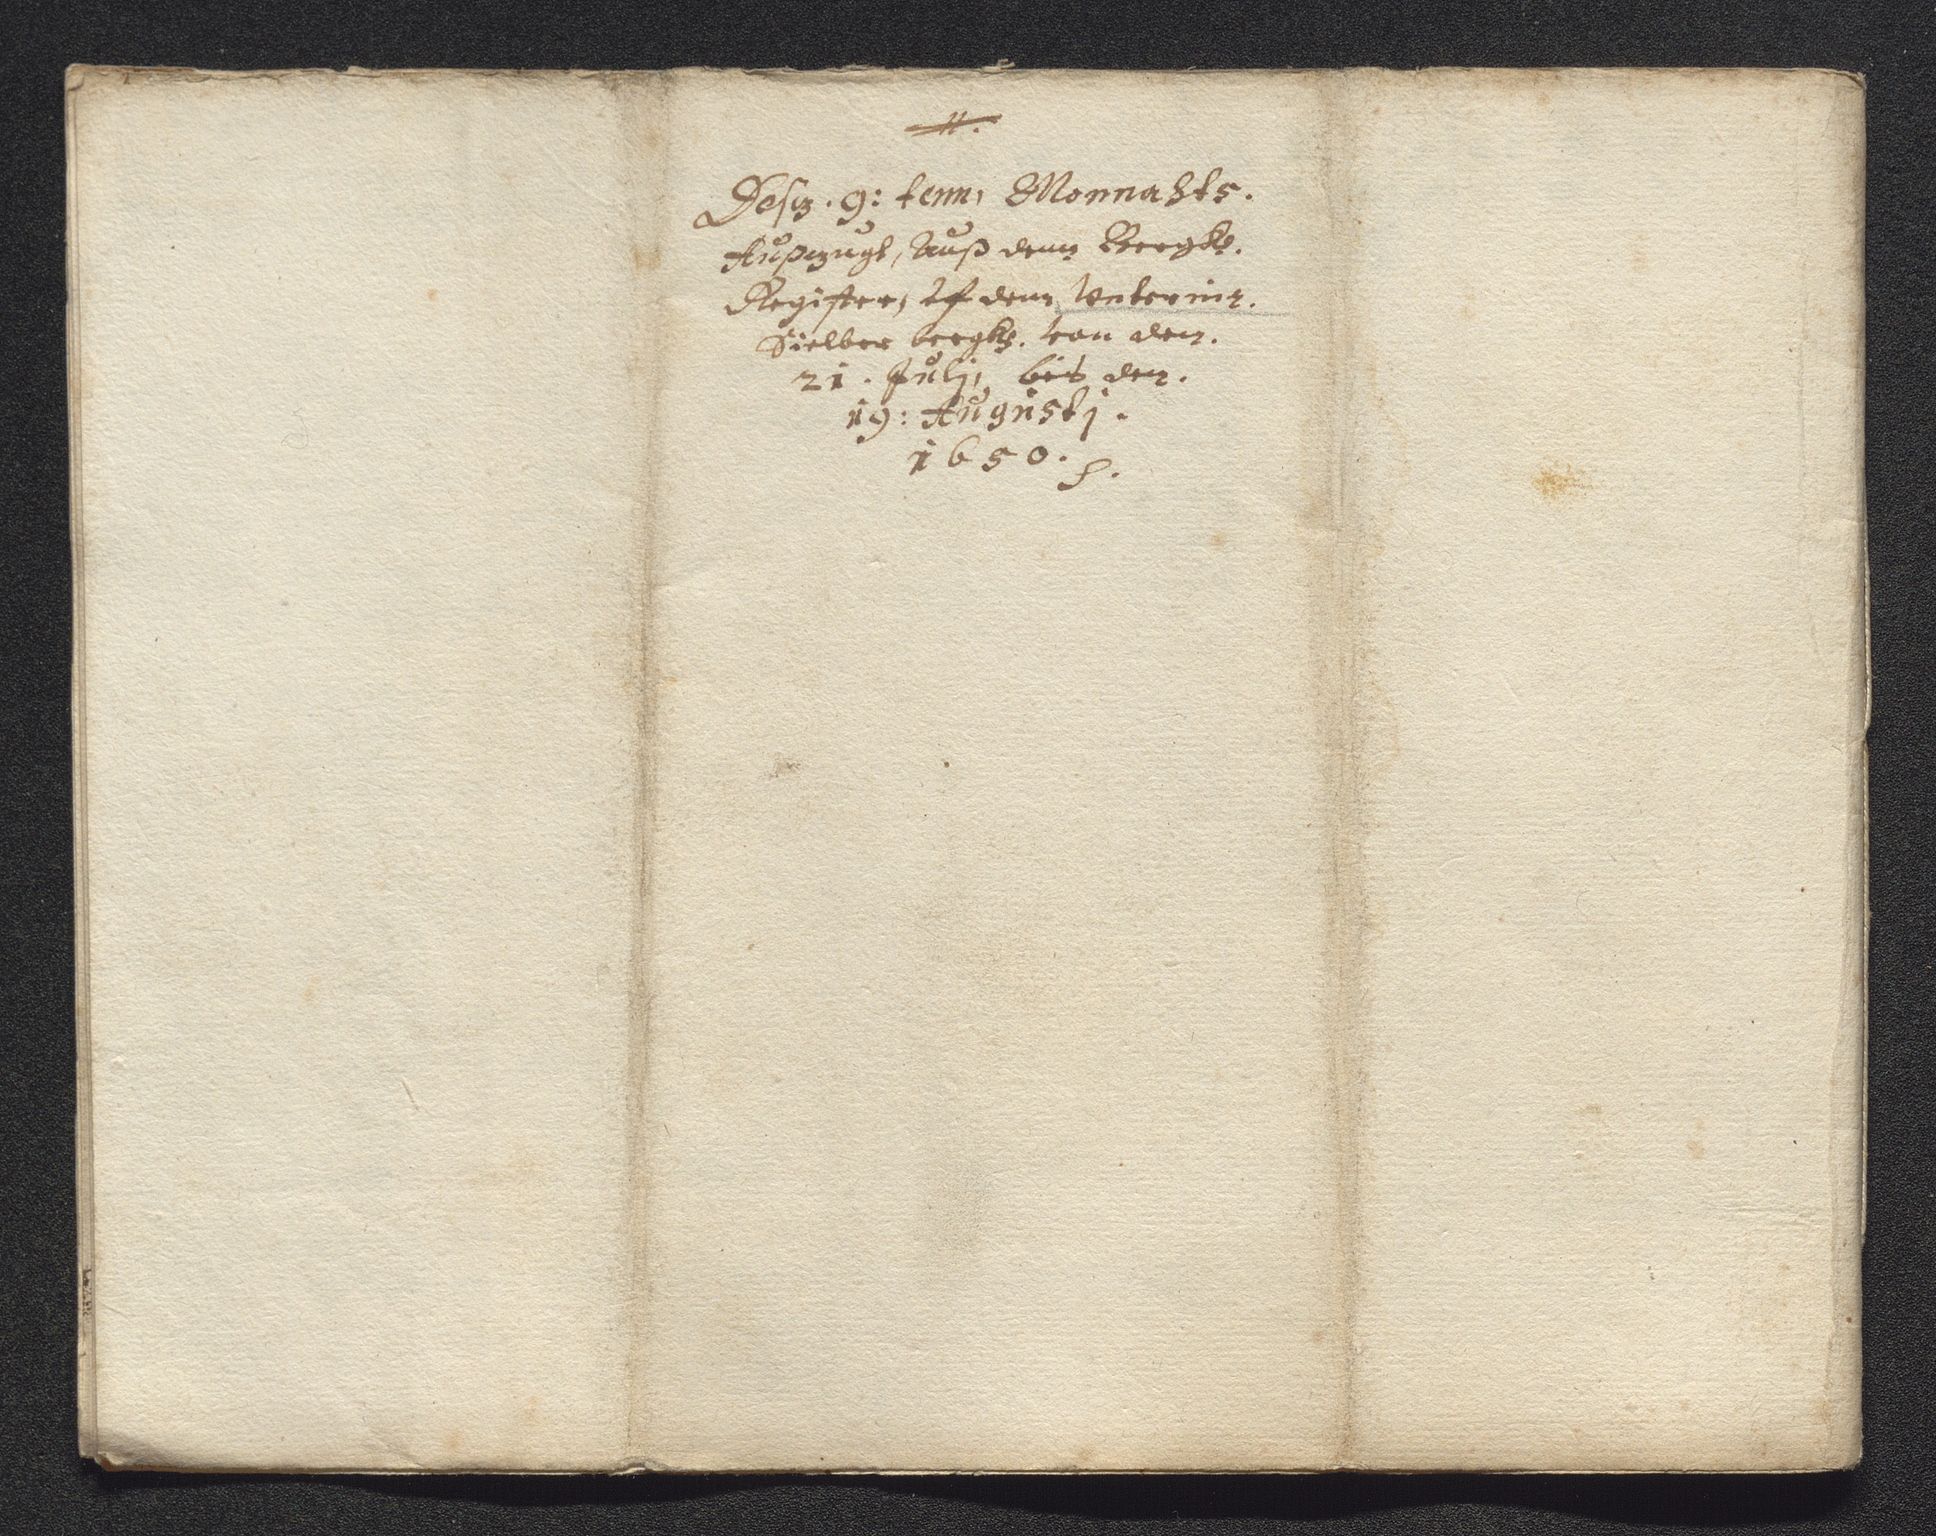 11.
Deß. 9: tenn, Monnahts.
Außzugk, Auß dem Bergk.
Register, uf dem Unterinn.
Sielber bergk. von den.
21. Julj, bis den.
19: Augustj.
1650.